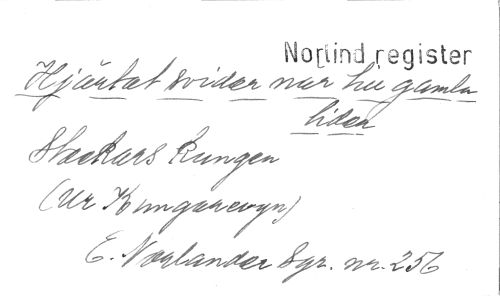 Norlind register
Hjärtat svider när hu gamla
lider
Stackars Kungen
(ur Kungarevyn)
E. Norlander Sgr. nr. 256